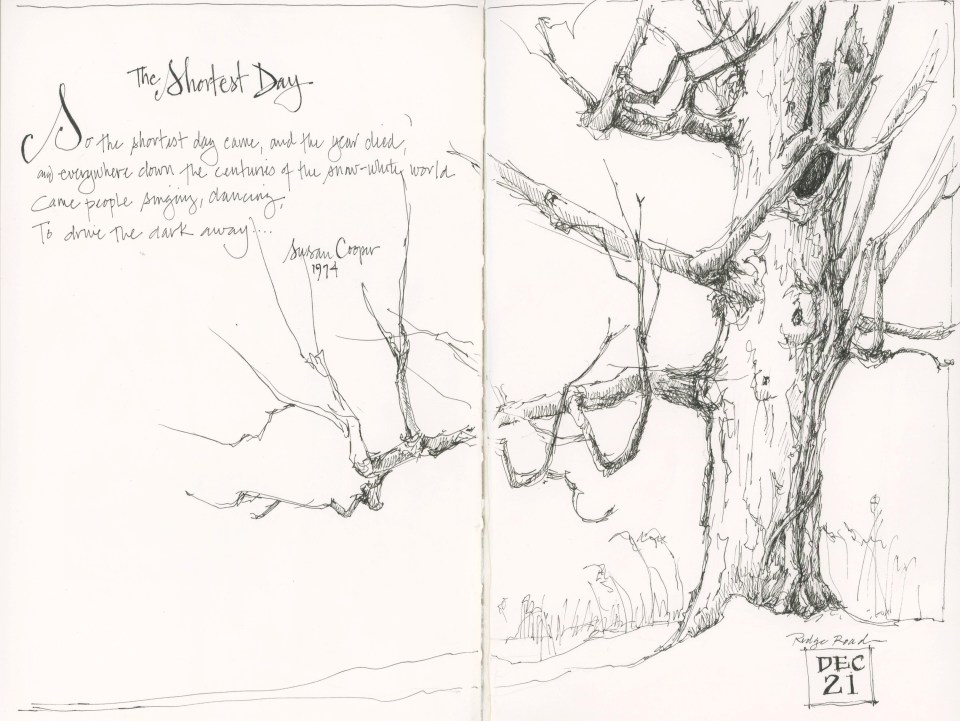 The Shortest Day
So the shortest day came, and the year died,
and everywhere down the centuries of the snow-white world
Came people singing, dancing,
To drive the dark away....
Susan Cooper
1974
Ridge Road
DEC
21